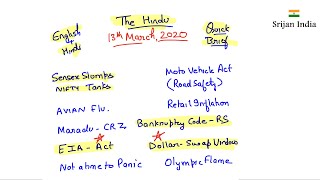 The Hindu
13th March, 2020
English + Hindi
Quick Brief
Srijan India
Sensex Slumps
NIFTY Tanks
Moto Vehicle Act
(Road Safety)
AVIAN Flu.
Retail Inflation
Maradu - CRZ
Bankruptcy Code - RS
EIA - Act
Dollar - Swap Window
Not a time to Panic
Olympic Flame